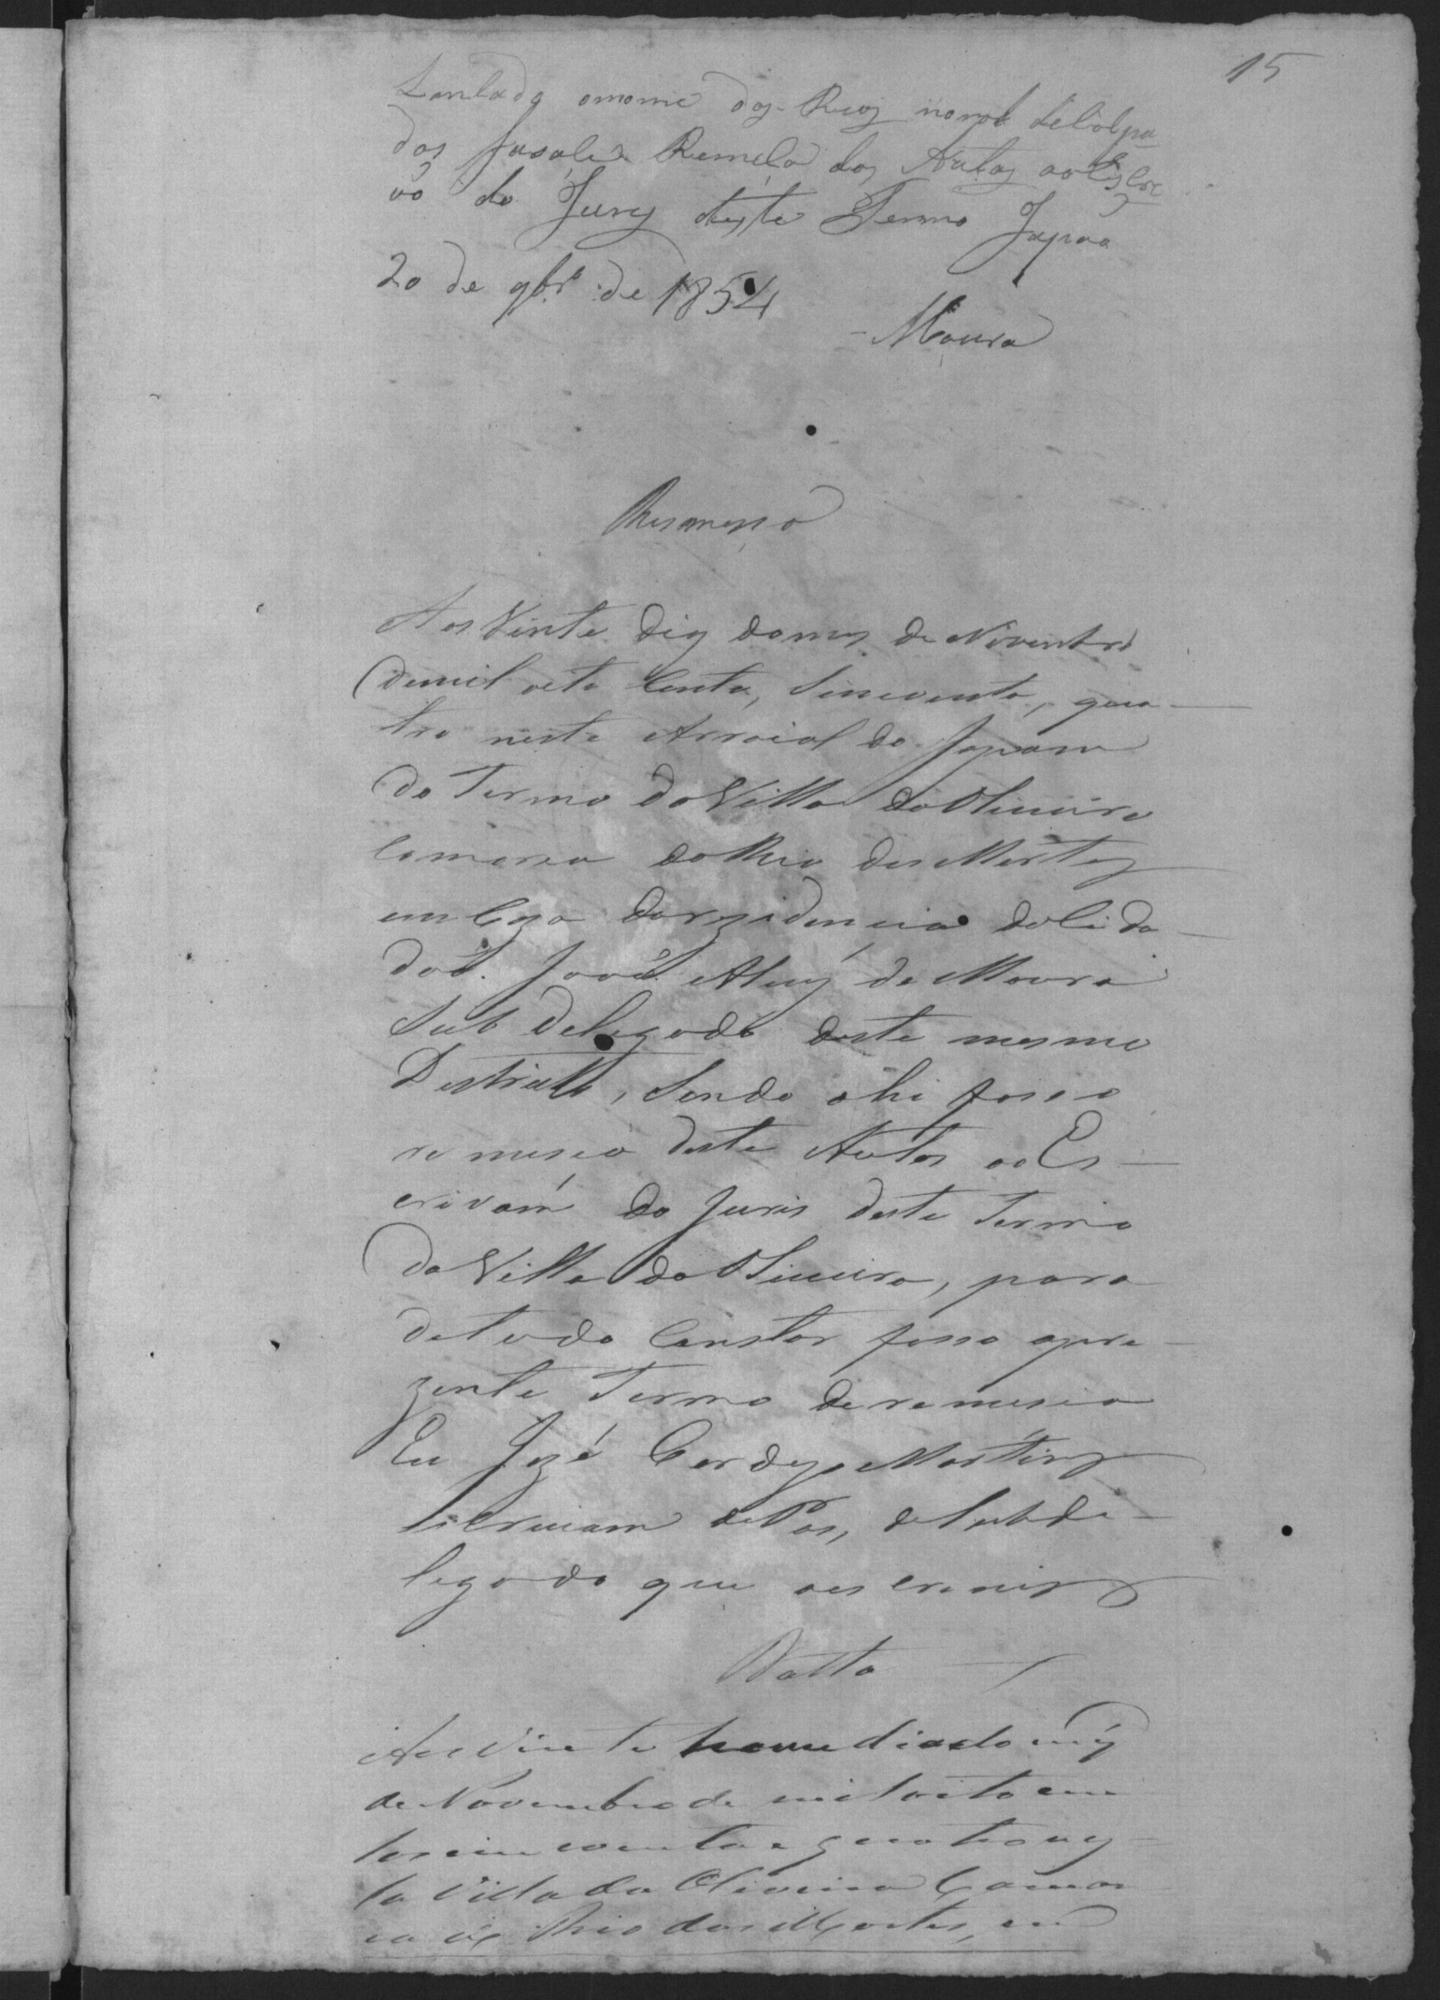 15
o nome dos Reos no rol de Colpa
dos fasase Remeça dos Autos ao Escre
vão do Jury deste Termo Japão
20 de 9br.º de 1854
Moura
Remessa
Aos Vinte dias do mes de Novembro
de mil oito Centos, Sincoenta, qua
tro neste Arraial do Japam
do Termo da Villa da Oliveira
Comarca do Rio das Mortes
em Caza da rezidencia do Cida
dão José Alves de Moura
Sub Delegado deste mesmo
Destricto, Sendo ahi faso a
remesea deste Autos ao Es
crivam do Juris deste Termo
da Villa da Oliveira, para
de tudo Constar faso apre
zente Termo de remesea
Eu José Martins
Escrivam de Pas, de Subde
legado que oescrevi
Datta
Aos Vinte nove dias do mes
de Novembro de mil oito cen
tos cincoenta e quatro nes
ta Villa da Oliveira Comar
ca do Rio das Mortes, em